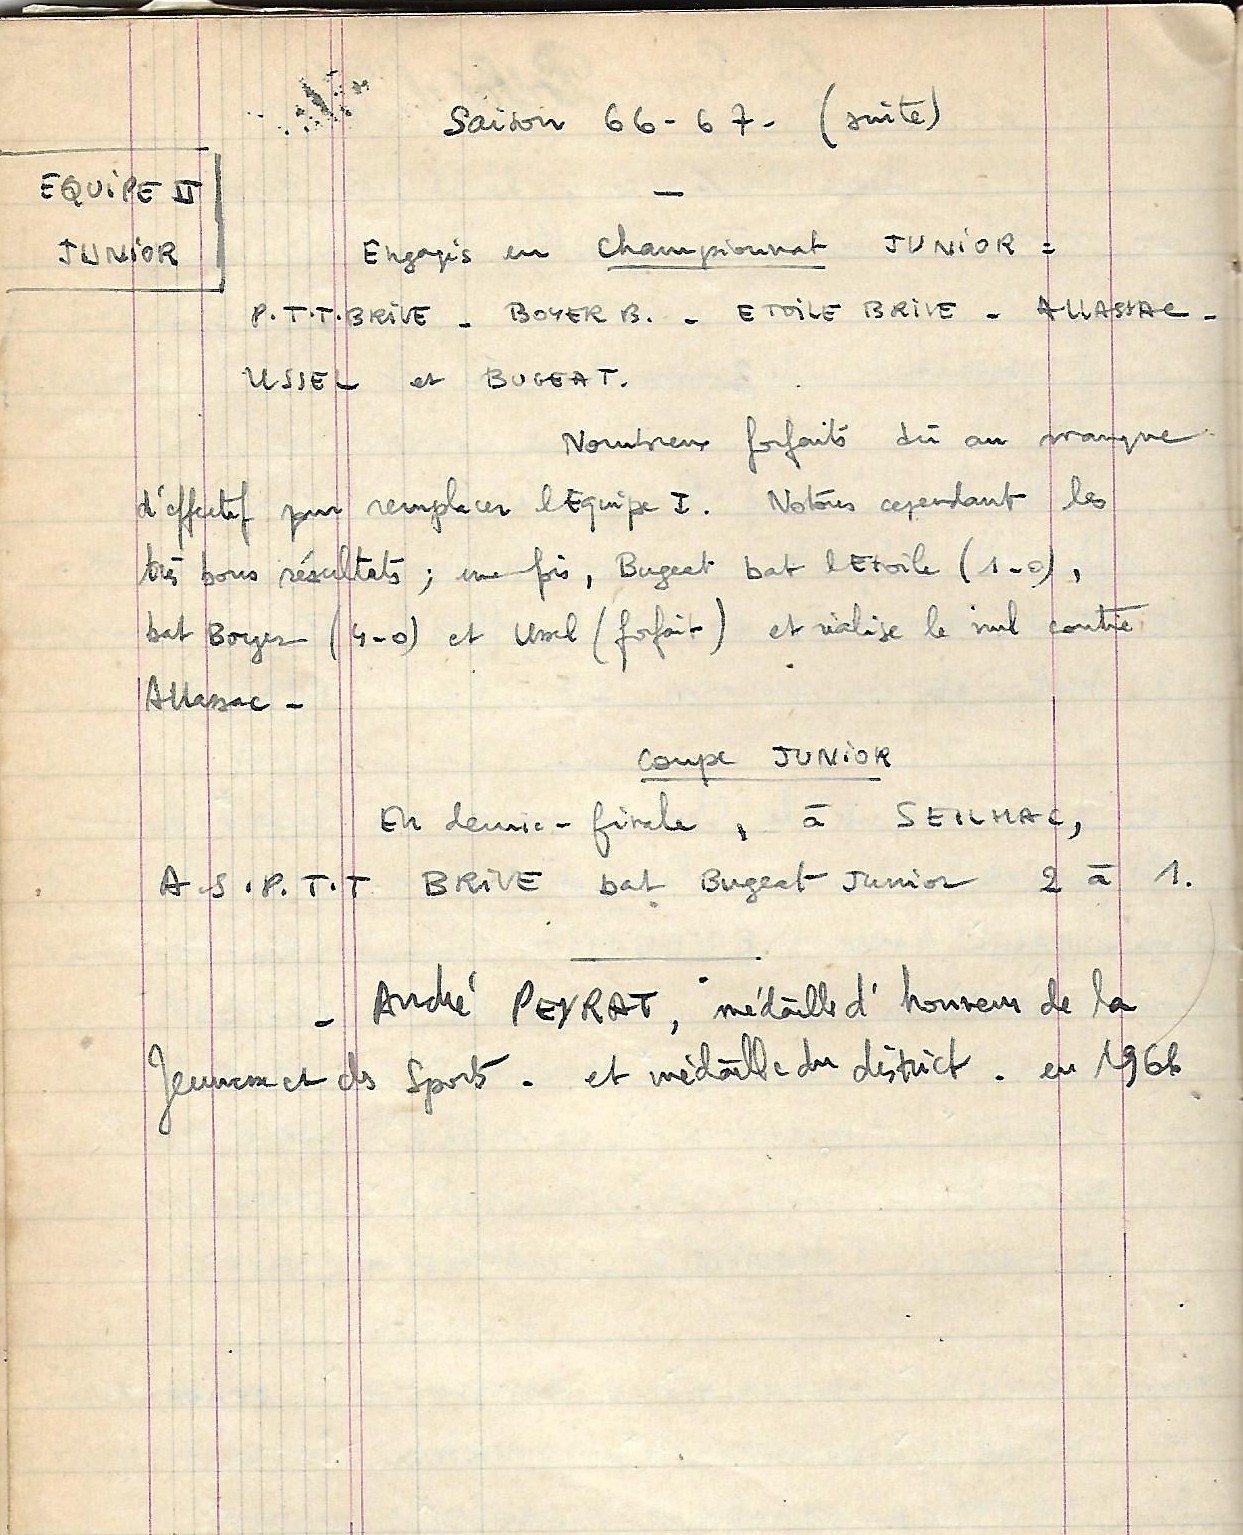 Saison 66-67- (suite)
EQUIPE II
JUNIOR
Engagés en Championnat JUNIOR =
P.T.T. BRIVE - BOYER B. - ETOILE BRIVE - ALLASSAC -
USSEL et BUGEAT.
Nombreux forfaits dû au manque
d'effectif pour remplacer l'Equipe I. Notons cependant les
très bons résultats ; une fois, Bugeat bat l'Etoile (1-0),
bat Boyer (4-0) et Ussel (forfait) et réalise le nul contre
Allassac -
Coupe JUNIOR
En demie-finale, à SEILHAC,
A.S.P.T.T BRIVE bat Bugeat Junior 2 à 1.
- André PEYRAT, médaille d'honneur de la
Jeunesse et des Sports. et médaille du district. en 1966